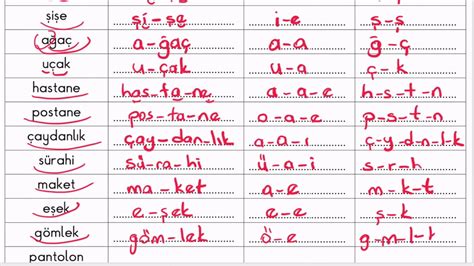 şişe şi-şe i-e ş-ş
ağaç a-ğaç a-a ğ-ç
uçak u-çak u-a ç-k
hastane has-ta-ne a-a-e h-s-t-n
postane pos-ta-ne o-a-e p-s-t-n
çaydanlık çay-dan-lık a-a-ı ç-y-d-n-l-k
sürahi sü-ra-hi ü-a-i s-r-h
maket ma-ket a-e m-k-t
eşek e-şek e-e ş-k
gömlek göm-lek ö-e g-m-l-k
pantolon